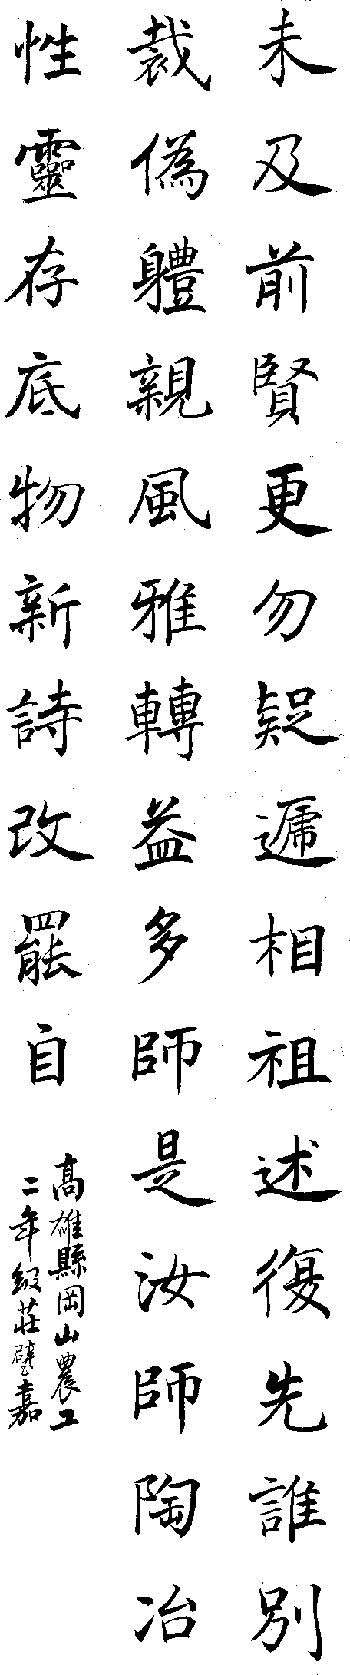 未及前賢更勿疑遞相祖述復先誰別
裁偽軆親風雅轉益多師是汝師陶冶
性靈存底物新詩改罷自
高雄縣岡山農工
二年級莊璧嘉